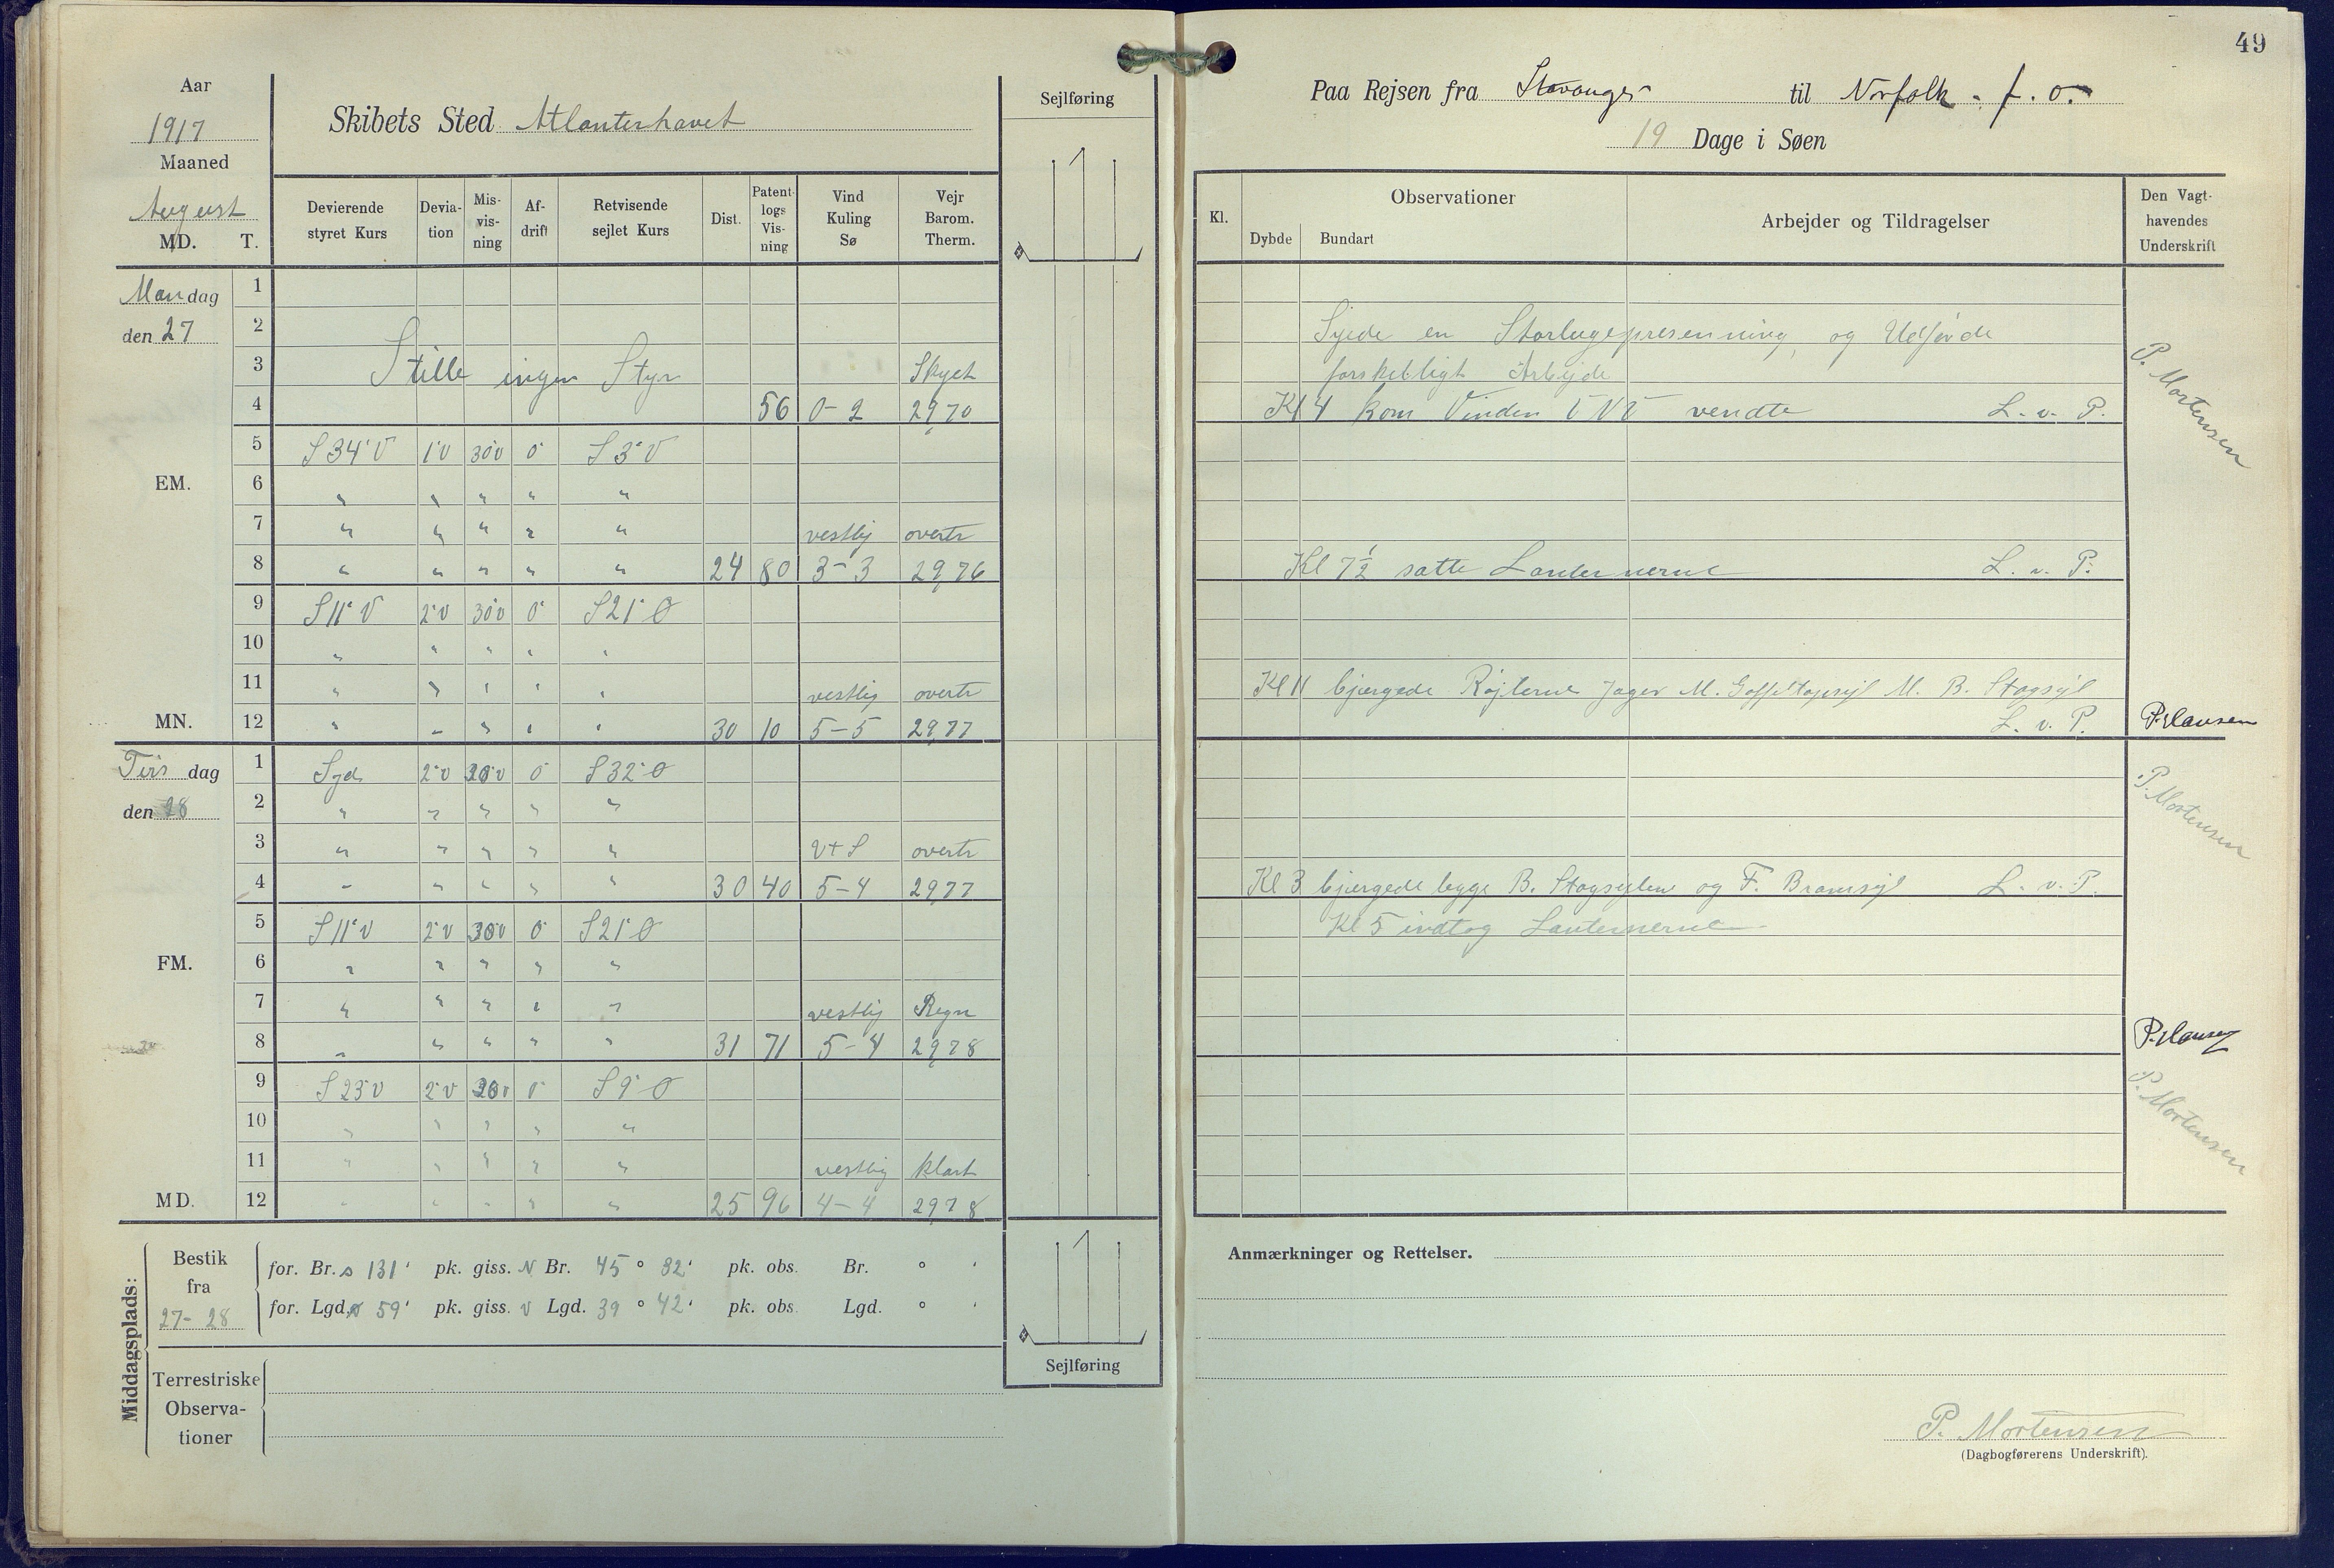 49
Aar
1917
Maaned
August
MD. T.
Skibets Sted Atlanterhavet
Sejlføring
Paa Rejsen fra Stavanger til Norfolk f. o.
19 Dage i Søen
Devierende styret Kurs
Devia-tion
Mis-vis-ning
Af-drift
Retvisende sejlet Kurs
Dist.
Patent-logs Vis-ning
Vind Kuling Sø
Vejr Barom. Therm.
Kl.
Observationer
Dybde Bundart
Arbejder og Tildragelser
Den Vagt-havendes Underskrift
Mandag
den 27
1
2 Syede en Storlugepresenning, og Udførde
3 Stille ingen Styr Skyet forskelligt Arbejde
4 56 0-2 29,70 Kl 4 kom Vinden VNV vendte L. v. P.
P. Mortensen
5 S 34° V 1°V 30°V 0° S 3° V
EM. 6 " " " " "
7 " " " " " vestlig overtr
8 " " " " " 24 80 3-3 29,76 Kl 7½ satte Lanternerne L. v. P.
9 S 11° V 2°V 30°V 0° S 21° O
10 " " " " "
11 " " " " " vestlig overtr Kl 11 bjergede Røjlerne Jager M. Gaffeltopsejl M. B. Stagsejl
MN. 12 " " " " " 30 10 5-5 29,77 L. v. P. P. Hansen
Tirsdag
den 28
1 Syd 2°V 30°V 0° S 32° O
2 " " " " "
3 " " " " " V t S overtr
4 " " " " " 30 40 5-4 29,77 Kl 3 bjergede begge B. Stagsejlene og F. Bramsejl L. v. P.
P. Mortensen
5 S 11° V 2°V 30°V 0° S 21° O Kl 5 indtog Lanternerne
FM. 6 " " " " "
7 " " " " " vestlig Regn
8 " " " " " 31 71 5-4 29,78 P. Hansen
9 S 23° V 2°V 30°V 0° S 9° O
10 " " " " "
11 " " " " " vestlig klart
MD. 12 " " " " " 25 96 4-4 29,78
P. Mortensen
Middagsplads:
Bestik fra 27-28
for. Br. s 131' pk. giss. N Br. 45° 32' pk. obs. Br. ° '
for. Lgd. 59' pk. giss. V Lgd. 39° 42' pk. obs. Lgd. ° '
Terrestriske Observa-tioner
Sejlføring
Anmærkninger og Rettelser.
P. Mortensen
(Dagbogførerens Underskrift).